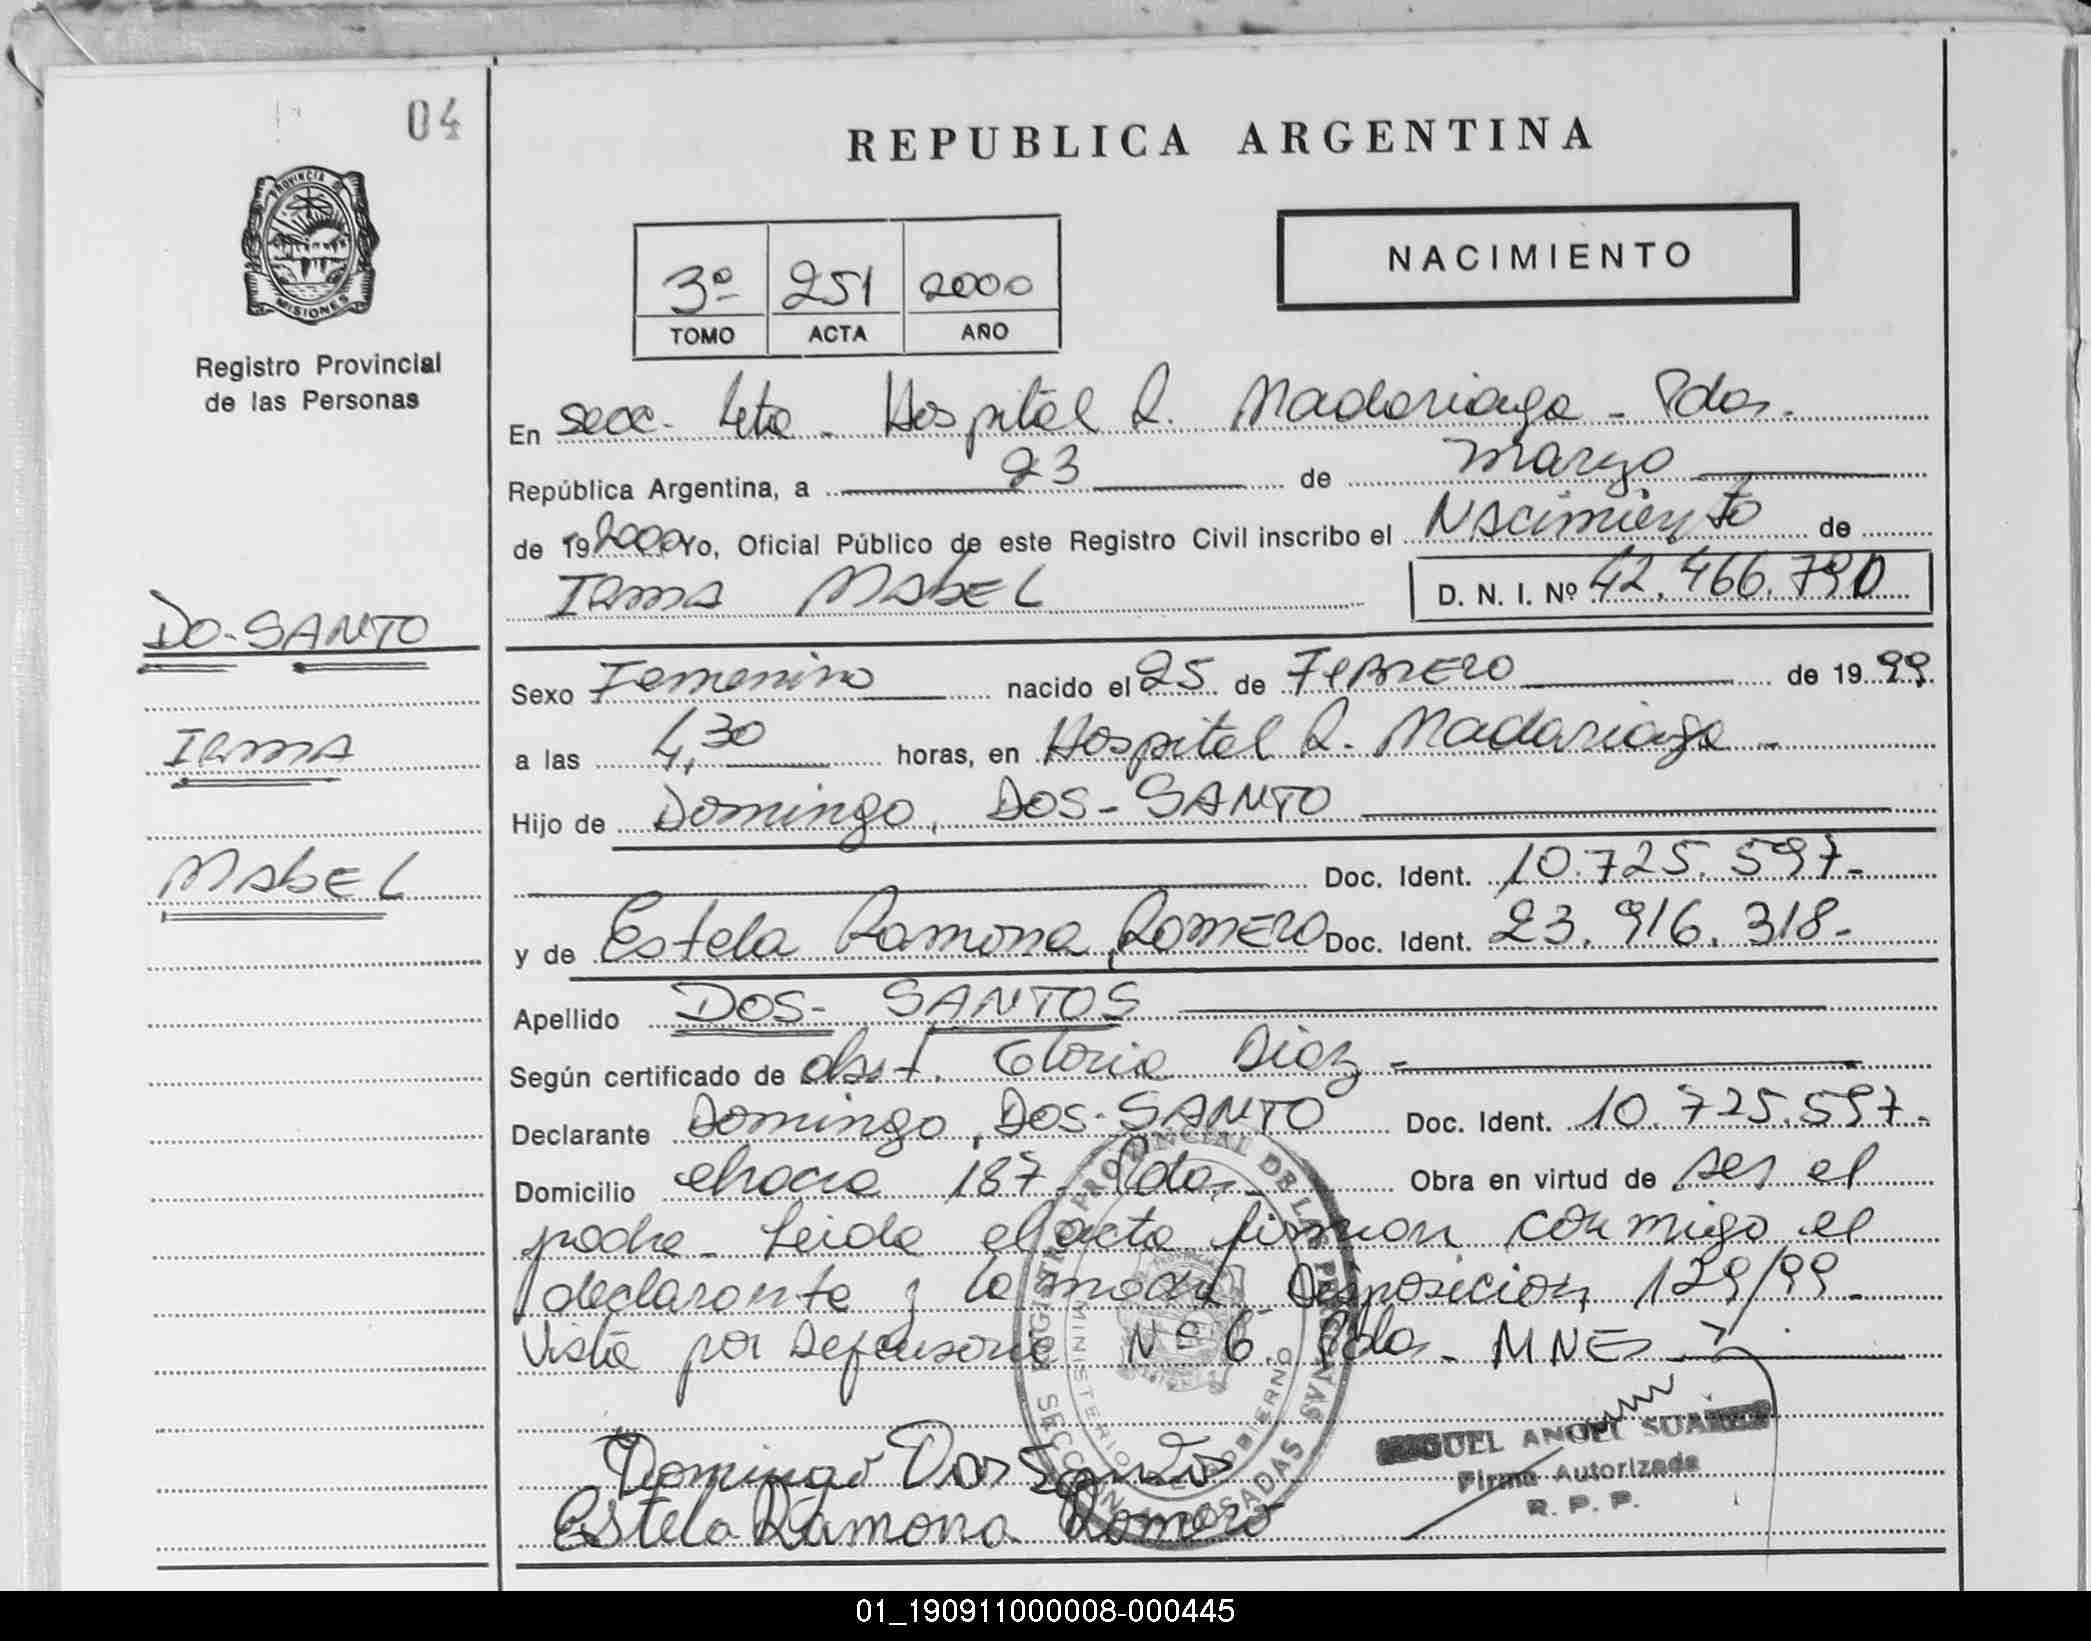 04
REPUBLICA ARGENTINA
PROVINCIA DE
MISIONES
Registro Provincial
de las Personas
3º 251 2000
TOMO ACTA AÑO
NACIMIENTO
En secc. 4ta. Hospital R. Madariaga - Pdas.
República Argentina, a 23 de marzo
de 19 2000 Yo, Oficial Público de este Registro Civil inscribo el Nacimiento de
IRMA MABEL D. N. I. Nº 42.466.790
DO-SANTO
IRMA
MABEL
Sexo Femenino nacido el 25 de FEBRERO de 1999.
a las 4,30 horas, en Hospital R. Madariaga -
Hijo de Domingo, DOS-SANTO
Doc. Ident. 10.725.597-
y de Estela Ramona, ROMERO Doc. Ident. 23.916.318-
Apellido DOS- SANTOS
Según certificado de obst. Gloria Diaz -
Declarante Domingo, DOS-SANTO Doc. Ident. 10.725.597-
Domicilio chacra 187- Pdas- Obra en virtud de ser el
padre- Leida el acta firman conmigo el
declarante y la madre Disposicion 129/99-
Vista por Defensoria Nº 6 Pdas- MNES-
Domingo Dos Santos
Estela Ramona Romero
REGISTRO PROVINCIAL DE LAS PERSONAS
MINISTERIO DE GOBIERNO
SECCION POSADAS
MIGUEL ANGEL SUAREZ
Firma Autorizada
R. P. P.
01_190911000008-000445